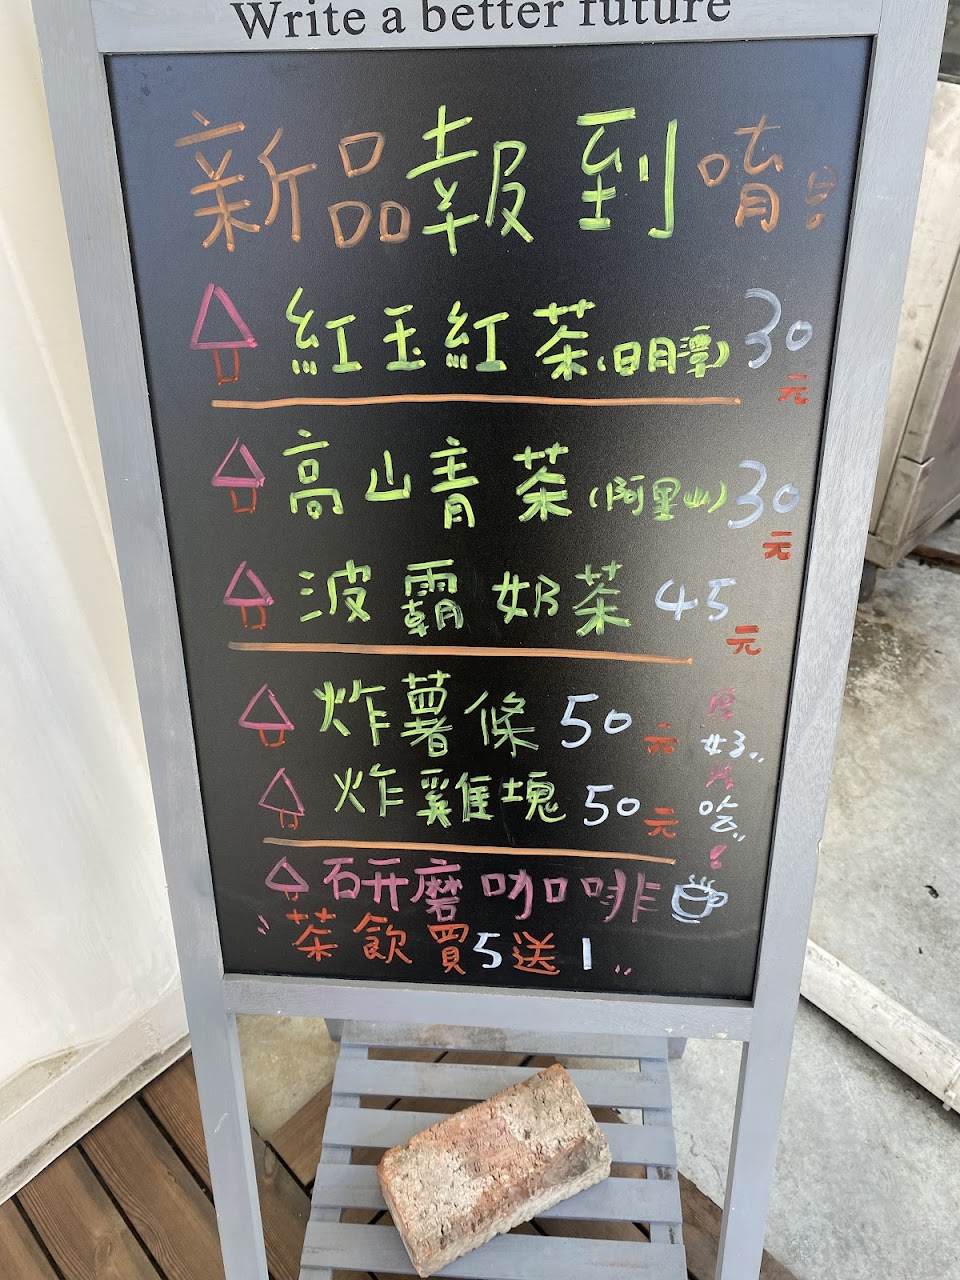 Write a better future
新品報到唷!
紅玉紅茶(日月潭)30元
高山青茶(阿里山)30元
波霸奶茶 45元
炸薯條 50元
炸雞塊 50元
厚好ㄘ哈!
研磨咖啡
茶飲買5送1